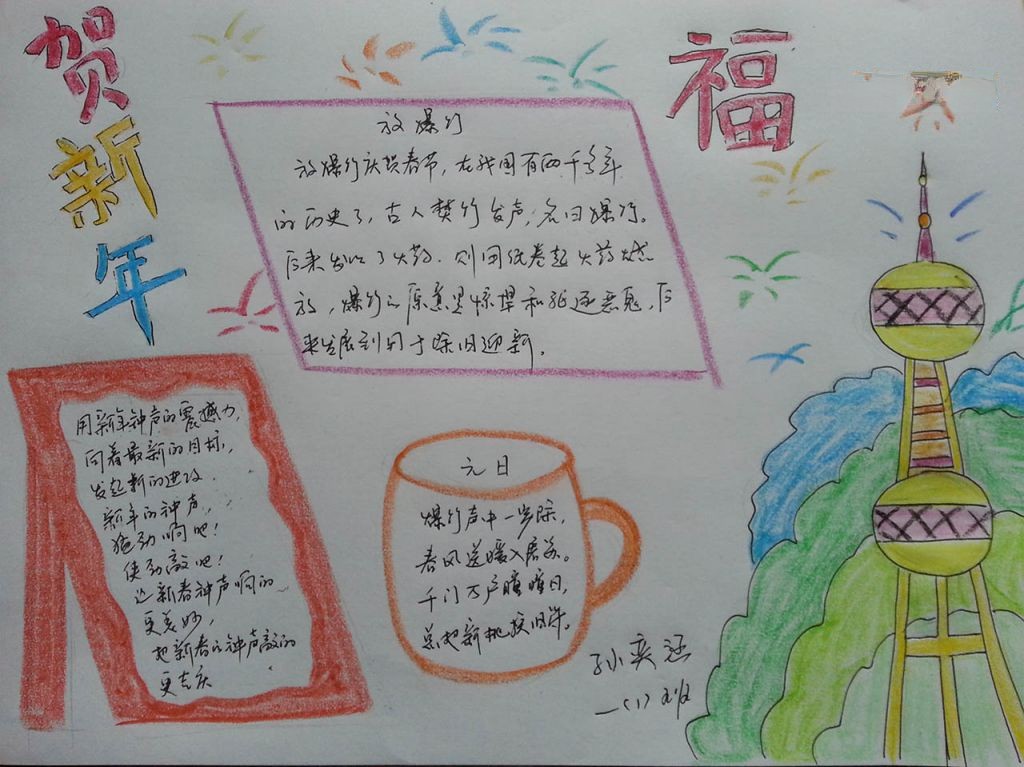 贺新年
福
放爆竹
放爆竹庆贺春节,在我国有两千多年
的历史了,古人焚竹发声,名曰爆竹。
后来发明了火药,则用纸卷起火药燃
放,爆竹的原意是惊惮和驱逐恶鬼,后
来发展到用于除旧迎新。
用新年钟声的震撼力,
向着最新的目标,
发起新的进攻.
新年的钟声,
猛劲响吧!
使劲敲吧!
让新春钟声响的
更美妙,
把新春的钟声敲的
更吉庆
元日
爆竹声中一岁除,
春风送暖入屠苏。
千门万户曈曈日,
总把新桃换旧符。
孙奕涵
一(1)班